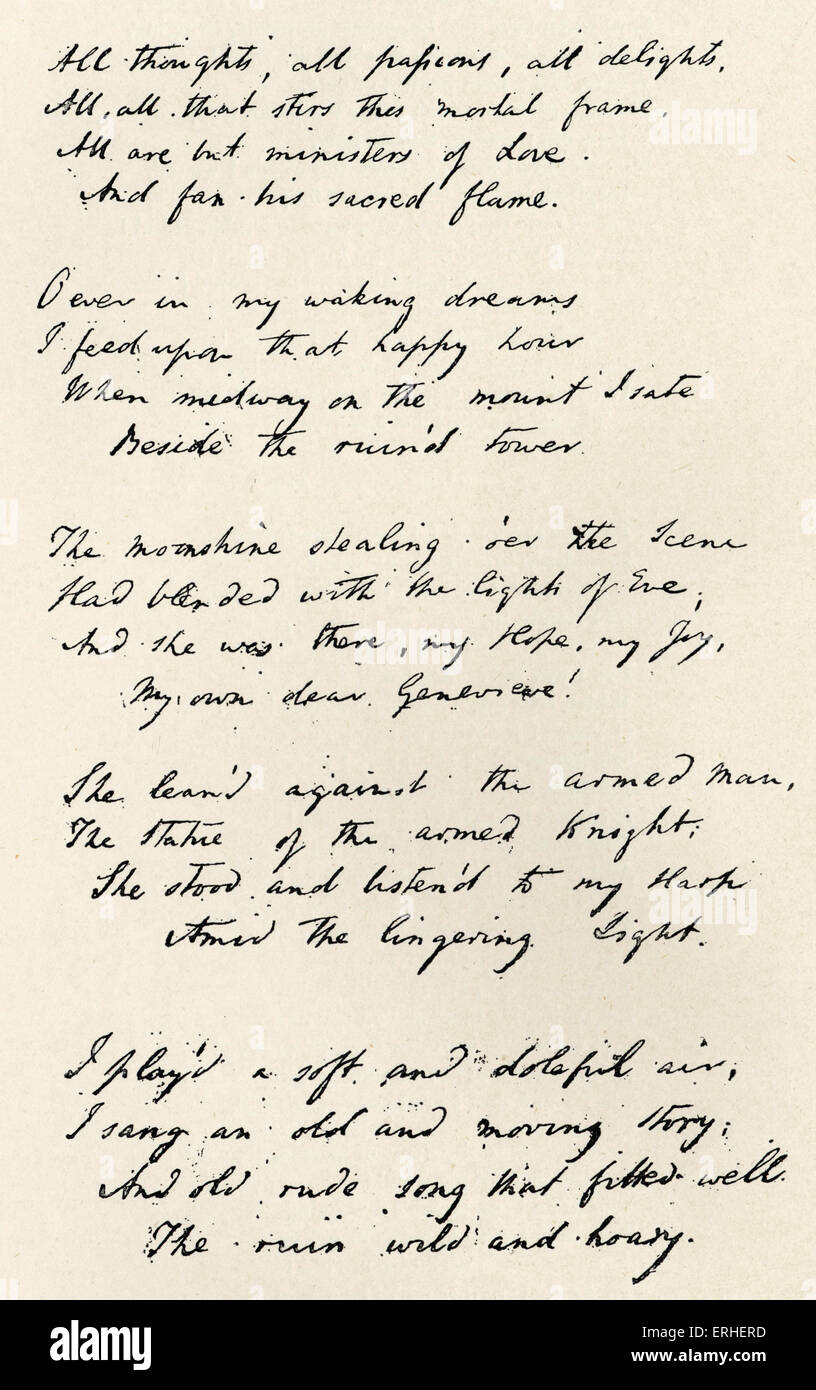 All thoughts, all passions, all delights,
All, all that stirs this mortal frame,
All are but ministers of Love.
And fan his sacred flame.
O ever in my waking dreams
I feed upon that happy hour
When midway on the mount I sate
Beside the ruin'd tower.
The moonshine stealing o'er the Scene
Had blended with the lights of Eve,
And she was there, my Hope, my Joy,
My own dear Genevieve!
She lean'd against the armed Man,
The Statue of the armed Knight;
She stood and listen'd to my Harp
Amid the lingering Light.
I play'd a soft and doleful air,
I sang an old and moving story;
And old rude song that fitted well
The ruin wild and hoary.
alamy
alamy
alamy
alamy
alamy
ERHERD
www.alamy.com